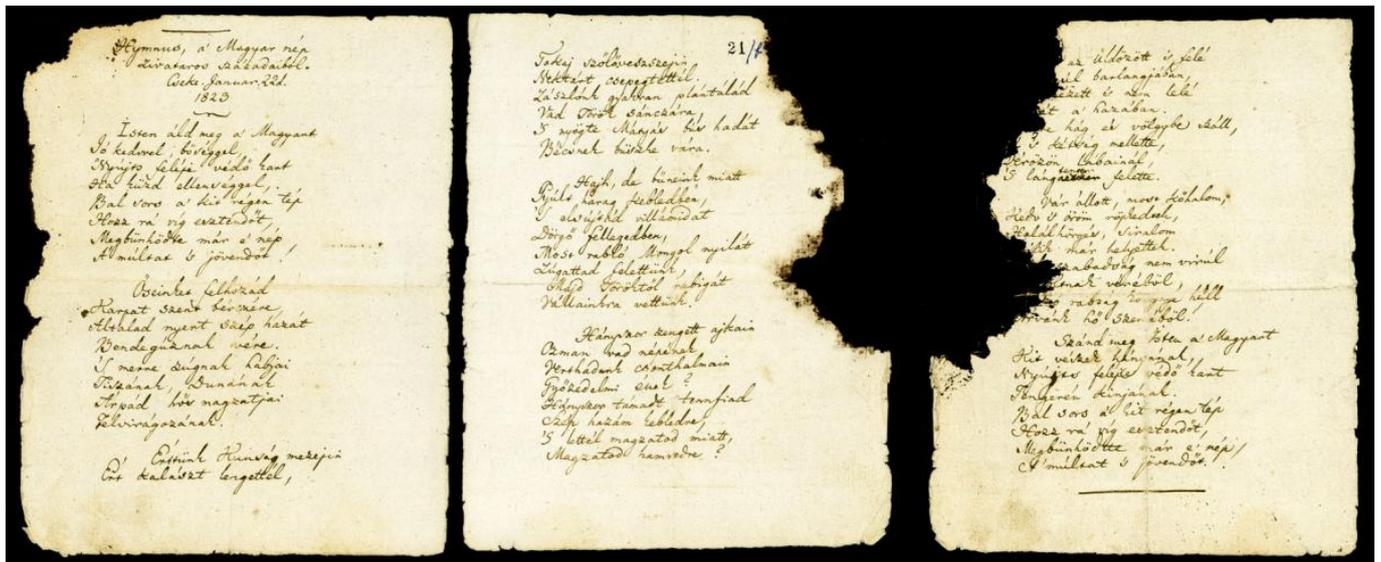 Hymnus, a' Magyar nép
zivataros századaiból.
Cseke. Januar. 22d.
1823
Isten áld meg a' Magyart
Jó kedvvel, bőséggel,
Nyújts feléje védő kart
Ha küzd ellenséggel,
Bal sors a' kit régen tép
Hozz rá víg esztendőt,
Megbűnhődte már e' nép
A' múltat 's jövendőt!
Őseinket felhozád
Kárpát szent bérczére,
Általad nyert szép hazát
Bendegúznak vére.
'S merre zúgnak habjai
Tiszának, Dunának
Árpád hős magzatjai
Felvirágozának.
Értünk Kunság mezejin
Ért kalászt lengettél,
21/
Tokaj szőlővesszejin
Nektárt csepegtettél.
Zászlónk gyakran plántálád
Vad Török sánczára,
'S nyögte Mátyás bús hadát
Bécsnek büszke vára.
Hajh, de bűneink miatt
Gyúlt harag kebledben,
'S elsújtád villámidat
Dörgő fellegedben,
Most rabló Mongol nyilát
Zúgattad felettünk,
Majd Töröktől rabigát
Vállainkra vettünk.
Hányszor zengett ajkain
Ozman vad népének
Vert hadunk csonthalmain
Győzedelmi ének?
Hányszor támadt tenn fiad
Szép hazám kebledre,
'S lettél magzatod miatt,
Magzatod hamvedre?
az üldözött 's felé
barlangjában,
nézett 's nem lelé
a' hazában.
hág és völgybe száll,
's kétség mellette,
Vérözön lábainál,
'S láng felette.
Vár állott, most kőhalom,
Kedv 's öröm röpkedtek,
Halálhörgés, siralom
már helyettek.
szabadság nem virúl
véréből,
rabság könnye hull
hő szeméből!
Szánd meg Isten a' Magyart
Kit vészek hányának,
Nyújts feléje védő kart
Tengerén kínjának.
Bal sors a' kit régen tép
Hozz rá víg esztendőt,
Megbűnhődte már e' nép,
A' múltat 's jövendőt.